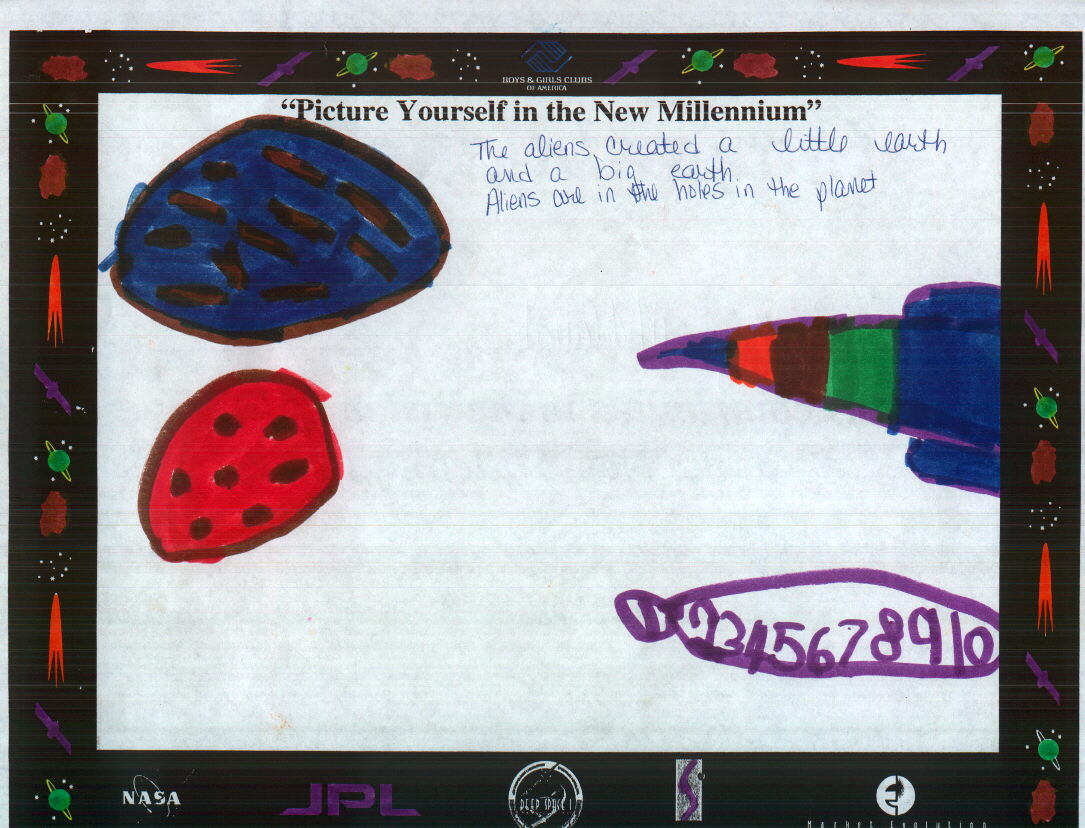 BOYS & GIRLS CLUBS
OF AMERICA
“Picture Yourself in the New Millennium”
The aliens created a little earth
and a big earth.
Aliens are in the holes in the planet
1 2 3 4 5 6 7 8 9 10
NASA
JPL
DEEP SPACE 1
Market Evolution